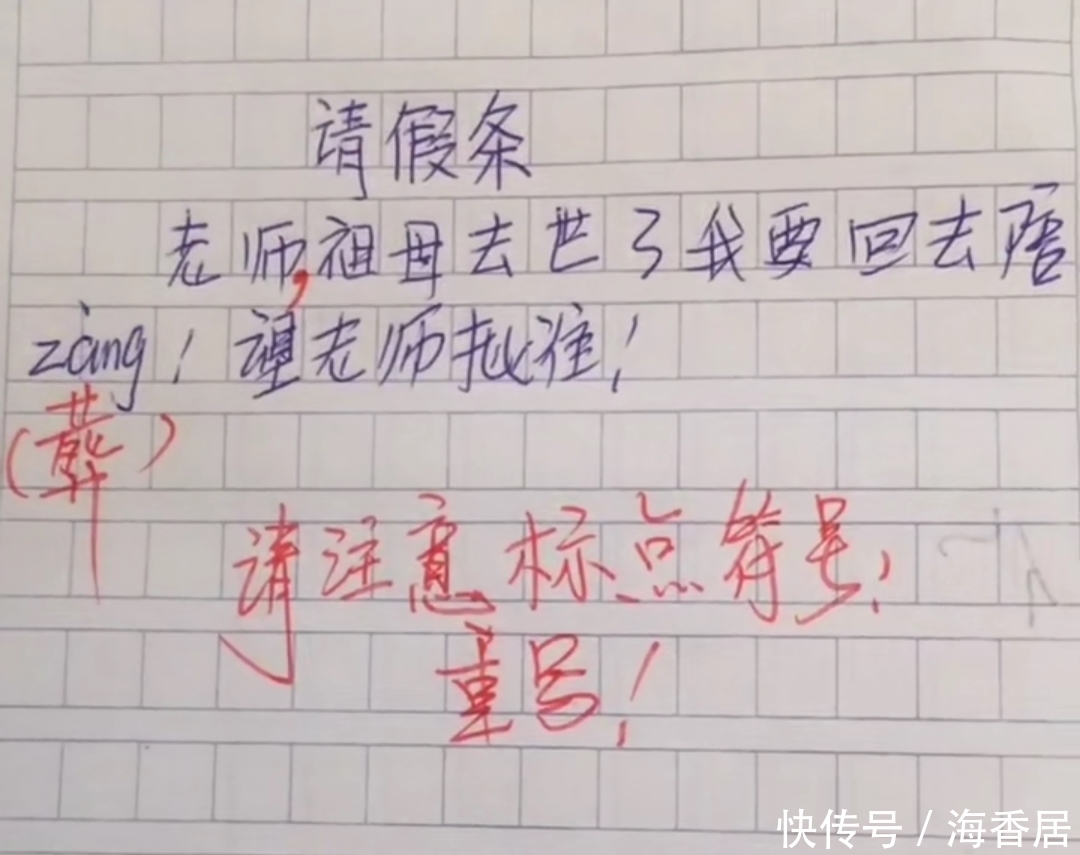 请假条
老师,祖母去世了我要回去陪
zàng!望老师批准!
(葬)
请注意标点符号!
重写!
快传号/海香居